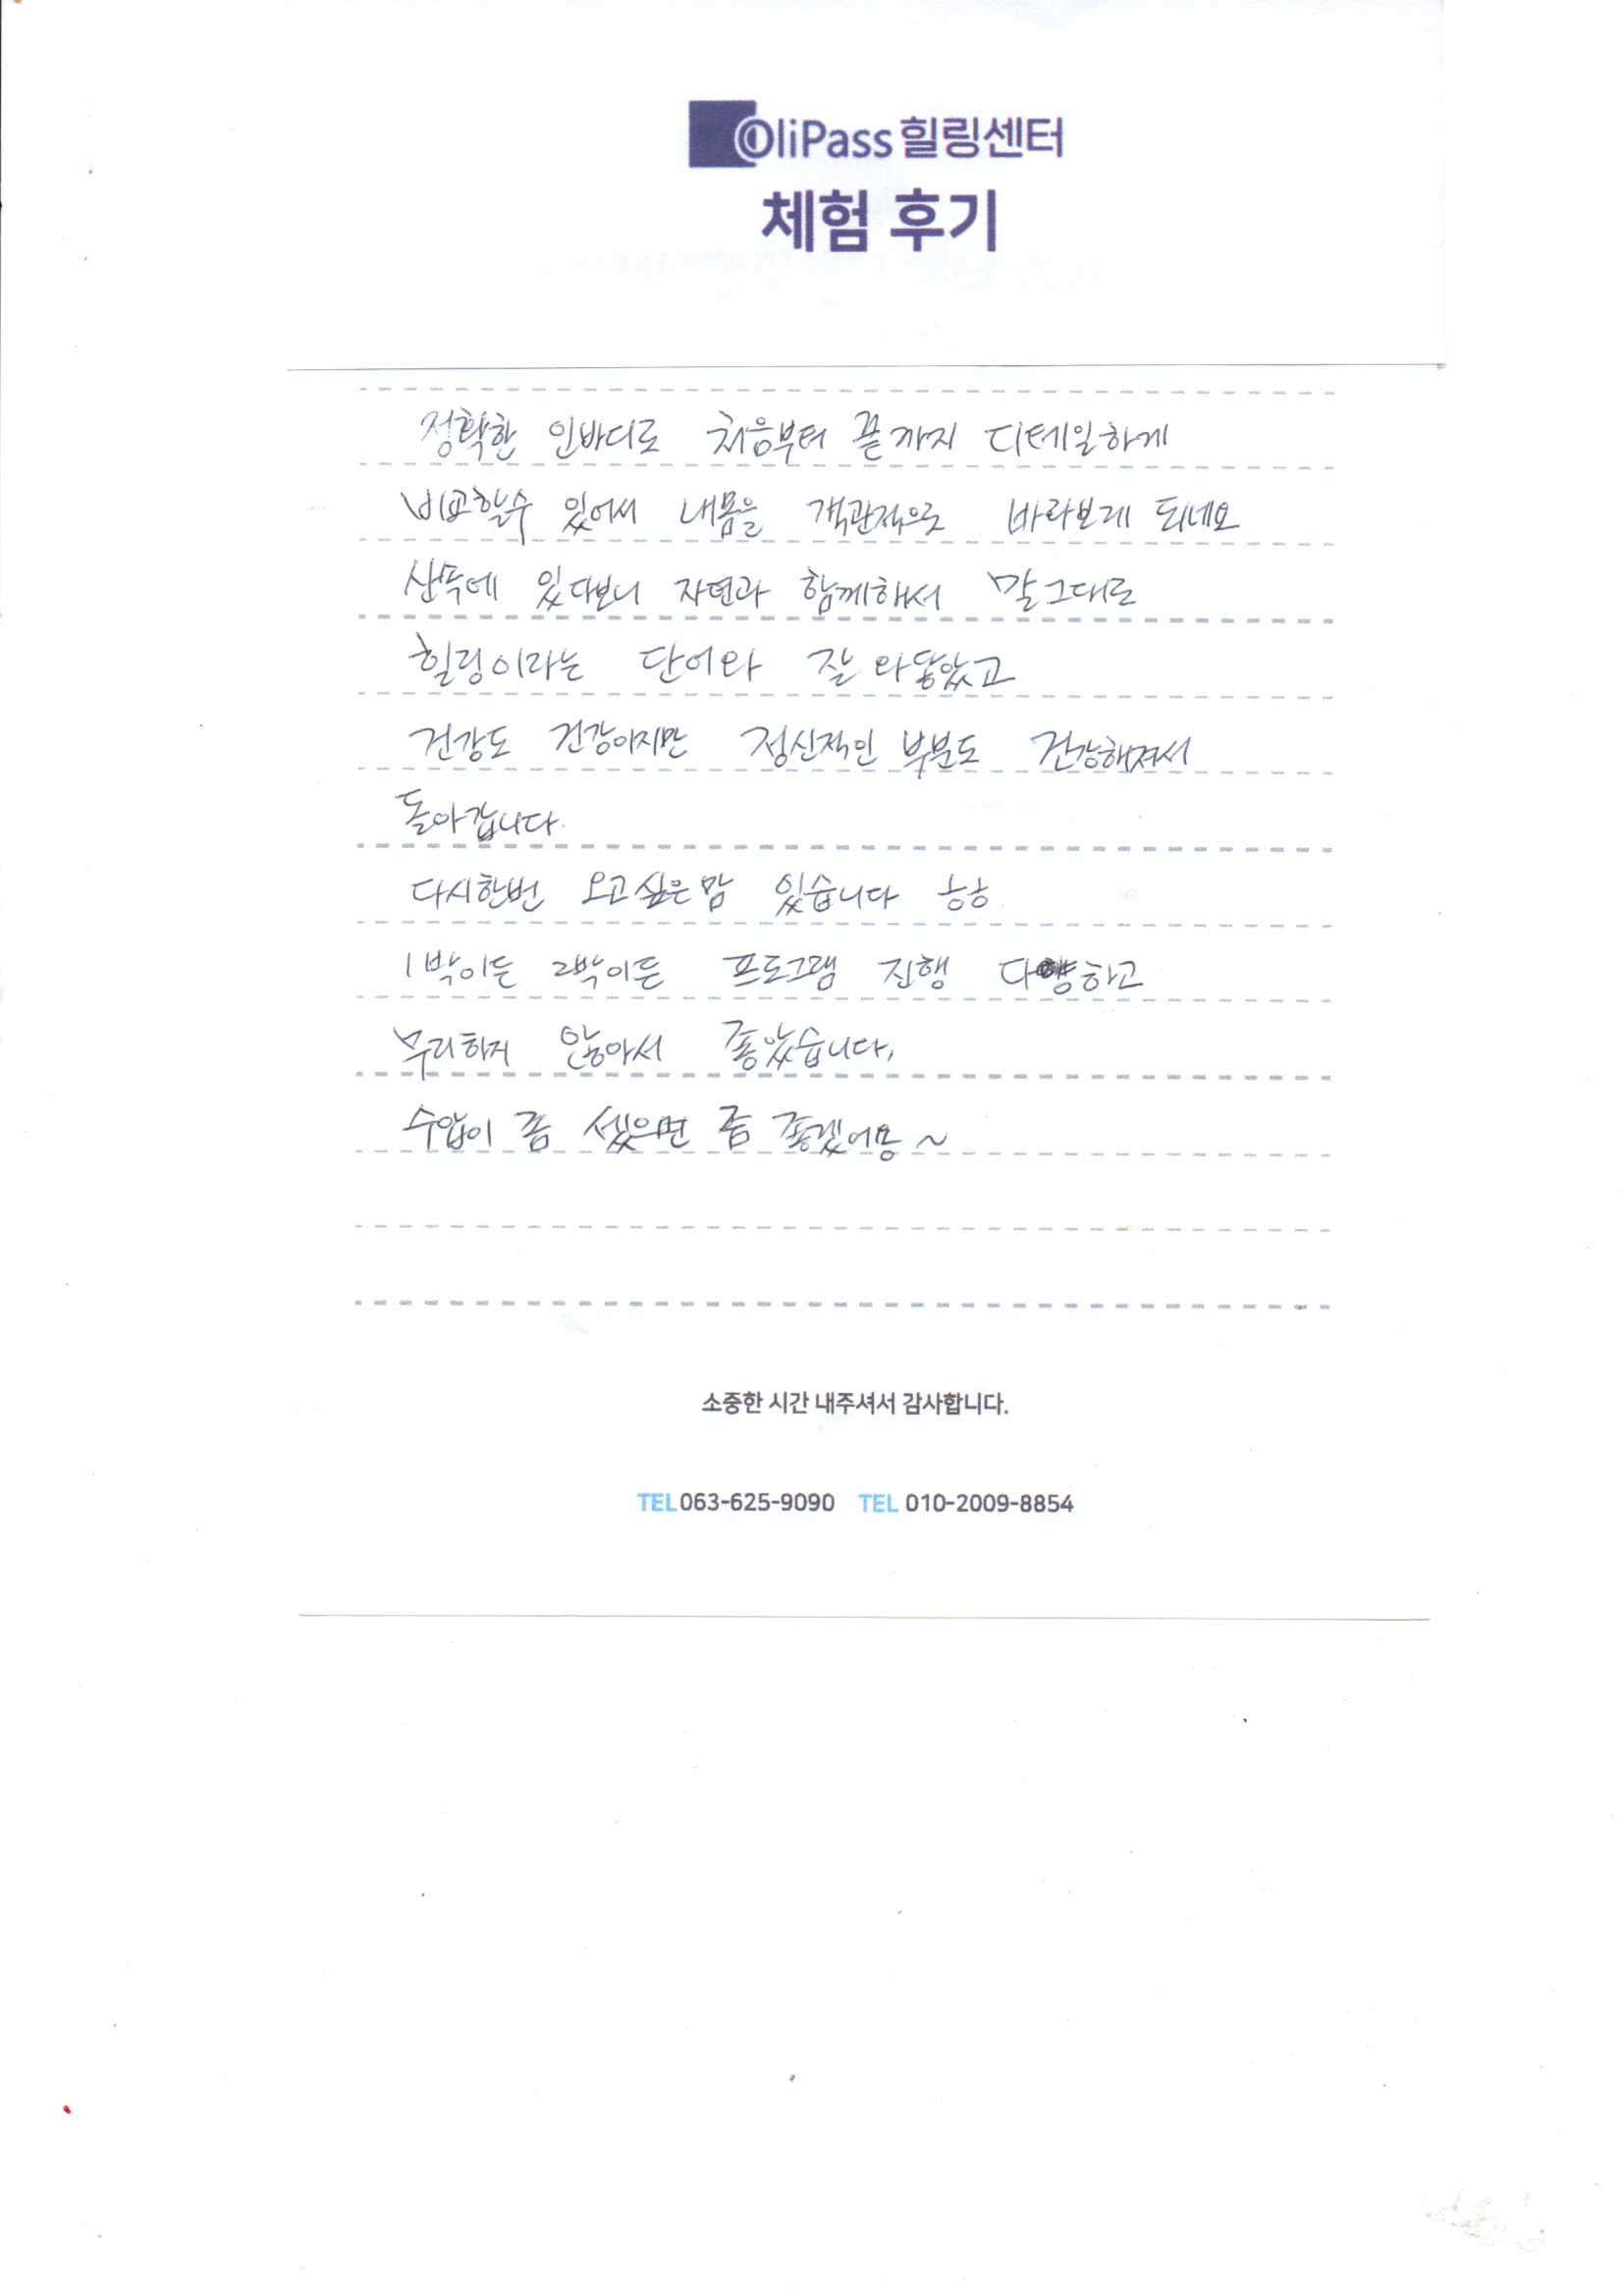 OliPass 힐링센터
체험 후기
정확한 인바디로 처음부터 끝까지 디테일하게
비교할수 있어서 내몸을 객관적으로 바라보게 되네요
산속에 있다보니 자연과 함께해서 말그대로
힐링이라는 단어와 잘 와닿았고
건강도 건강이지만 정신적인 부분도 건강해져서
돌아갑니다.
다시한번 오고싶은맘 있습니다 ㅎㅎ
1박이든 2박이든 프로그램 진행 다양하고
무리하지 않아서 좋았습니다,
수압이 좀 셌으면 좀 좋겠어용~
소중한 시간 내주셔서 감사합니다.
TEL 063-625-9090 TEL 010-2009-8854